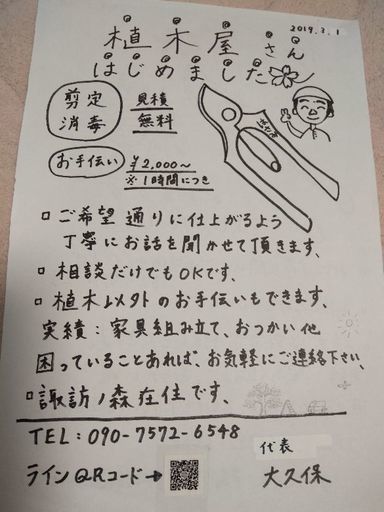 2019.3.1
植木屋さん
はじめました
剪定
消毒
見積
無料
お手伝い
¥2,000〜
※1時間につき
植木屋
□ご希望通りに仕上がるよう
丁寧にお話を聞かせて頂きます、
□相談だけでもOKです、
□植木以外のお手伝いもできます、
実績：家具組み立て、おつかい他
困っていることあれば、お気軽にご連絡下さい、
□諏訪ノ森在住です、
TEL：090-7572-6548
ラインQRコード→
代表
大久保